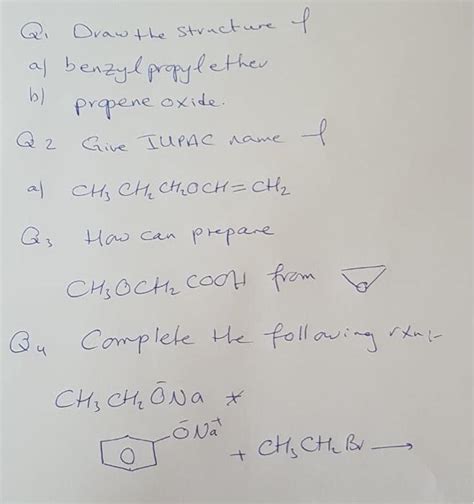 Q1 Draw the structure of
a) benzyl propyl ether
b) propene oxide.
Q2 Give IUPAC name of
a) CH3 CH2 CH2OCH=CH2
Q3 How can prepare
CH3OCH2 COOH from
O
Q4 Complete the following rxn:-
CH3 CH2 ŌNa *
ŌNa+
O + CH3CH2Br →